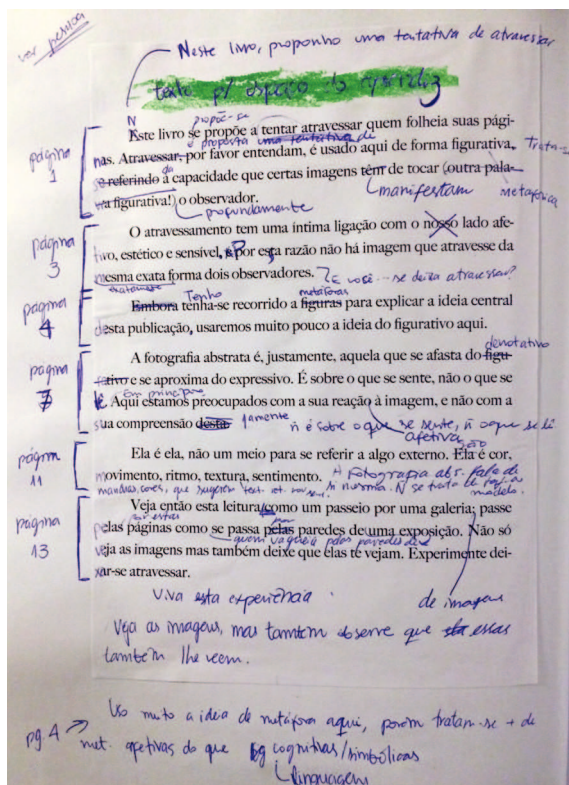 ver pessoa
Neste livro, proponho uma tentativa de atravessar
texto p/ espaço do
N
propõe-se
Este livro se propõe a tentar atravessar quem folheia suas pági-
é proposta uma tentativa de
nas. Atravessar, por favor entendam, é usado aqui de forma figurativa,
Trata-se
da
se referindo à capacidade que certas imagens têm de tocar (outra pala-
manifestam
metafórica
vra figurativa!) o observador.
profundamente
página
1
O atravessamento tem uma íntima ligação com o nosso lado afe-
tivo, estético e sensível, e por esta razão não há imagem que atravesse da
mesma exata forma dois observadores.
exatamente
E você... se deixa atravessar?
página
3
Tenho
metáforas
Embora tenha-se recorrido a figuras para explicar a ideia central
desta publicação, usaremos muito pouco a ideia do figurativo aqui.
página
4
A fotografia abstrata é, justamente, aquela que se afasta do figu-
denotativo
rativo e se aproxima do expressivo. É sobre o que se sente, não o que se
Em princípio
lê. Aqui estamos preocupados com a sua reação à imagem, e não com a
afetiva
sua compreensão desta.
ñ é sobre o que se sente, ñ o que se lê
página
7
Ela é ela, não um meio para se referir a algo externo. Ela é cor,
movimento, ritmo, textura, sentimento.
A fotografia abs. fala de
manchas, cores, que sugerem text.
si mesma. Ñ se trata de
página
11
Veja então esta leitura como um passeio por uma galeria; passe
por estas
pelas páginas como se passa pelas paredes de uma exposição. Não só
quem vagueia pelas paredes de
veja as imagens mas também deixe que elas te vejam. Experimente dei-
xar-se atravessar.
página
13
Viva esta experiência
de imagens
Veja as imagens, mas também observe que essas
também lhe veem.
pg. 4 → Uso muito a ideia de metáfora aqui, porém tratam-se + de
met. afetivas do que cognitivas/simbólicas
linguagem